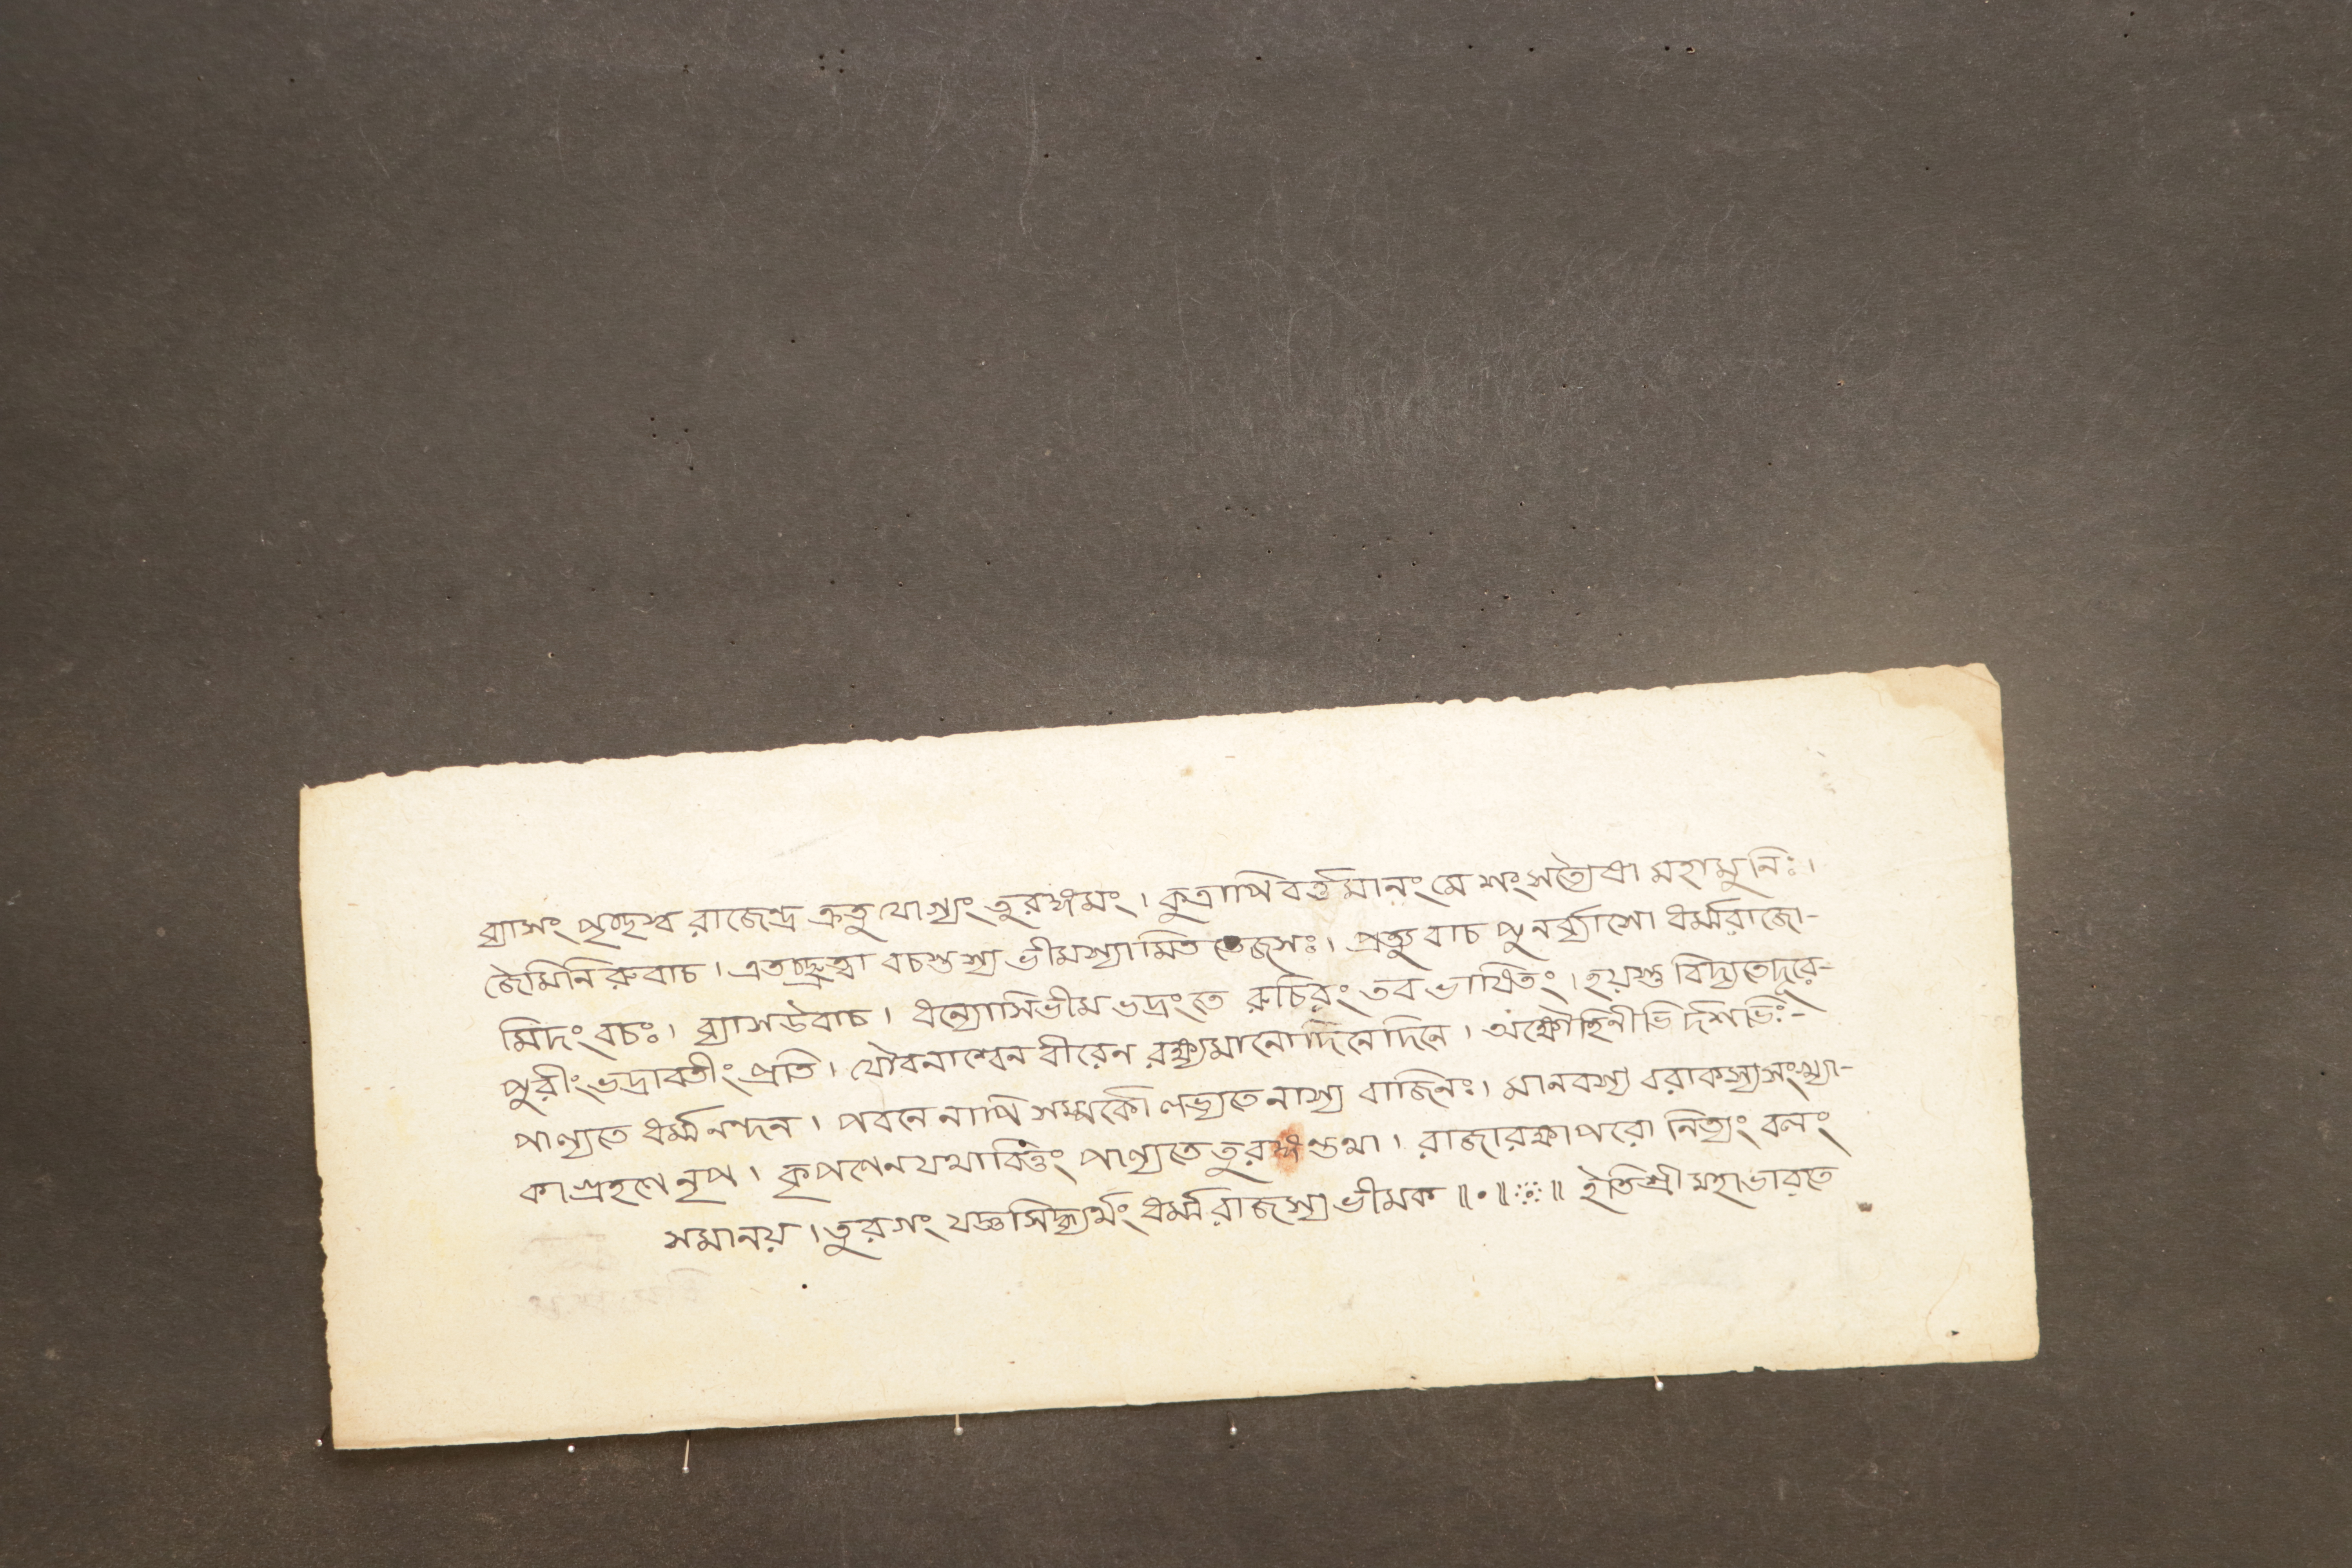 ব্যাসং পৃচ্ছস্ব রাজেন্দ্র ক্রতু যোগ্যং তুরঙ্গমং। কুত্রাপি বর্ত্তমানং মে শংসত্যেষা মহামুনিঃ।
জৈমিনি রুবাচ। এতচ্ছ্রুত্বা বচস্তস্য ভীমস্যামিত তেজসঃ। প্রত্যুবাচ পুনর্ব্যাসো ধর্ম্মরাজো-
মিদং বচঃ। ব্যাসউবাচ। ধন্যোসিভীম ভদ্রংতে রুচিরং তব ভাষিতং। হয়স্তু বিদ্যতেদূরে-
পুরীং ভদ্রাবতীং প্রতি। যৌবনাশ্বেন বীরেন রক্ষ্যমানোদিনেদিনে। অক্ষৌহিনীভি দর্শভিঃ-
পাল্যতে ধর্ম্মনন্দন। পবনে নাপি সম্পর্কো লভ্যতে নাস্য বাজিনঃ। মানবস্য বরাকস্য সংখ্যা-
কা গ্রহণে নৃপ। কৃপণেন যথা বিত্তং পাল্যতে তুরঙ্গস্তথা। রাজা রক্ষাপরো নিত্যং বলং
সমানয়। তুরগং যজ্ঞসিদ্ধ্যর্থং ধর্ম্মরাজস্য ভীমক॥০॥ ॥ ইতিশ্রী মহাভারতে